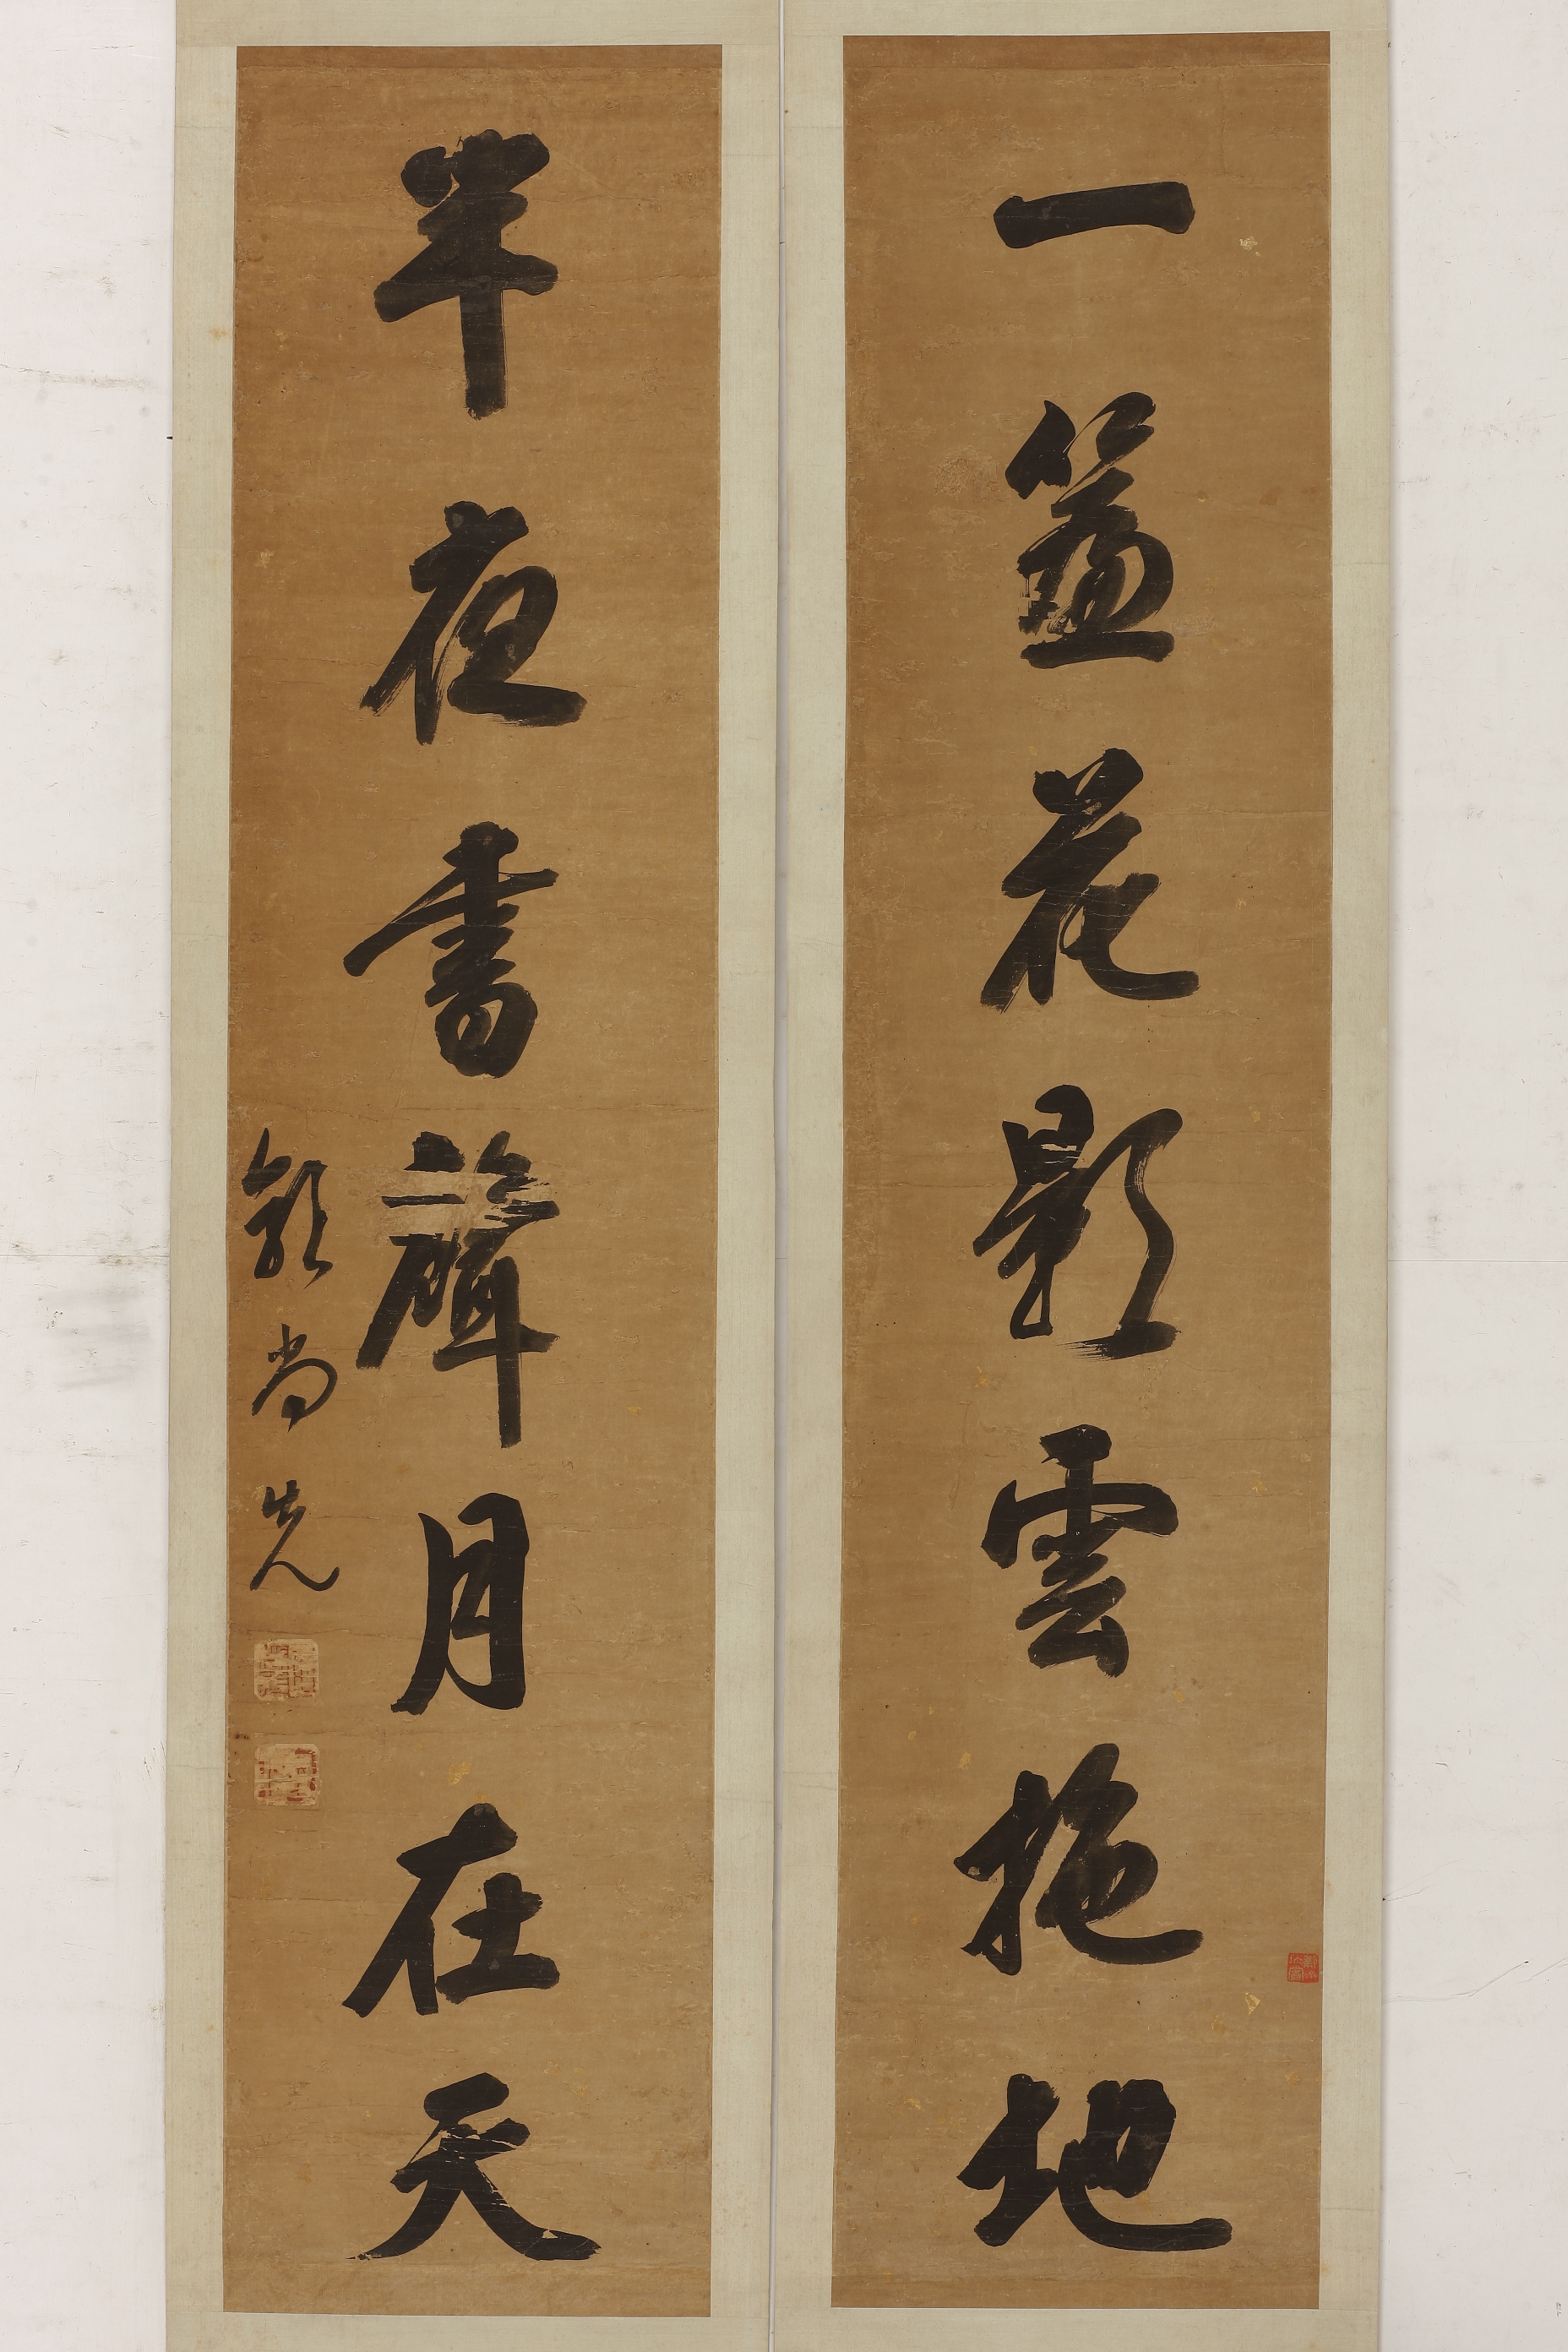 一簾花影雲拖地
半夜書聲月在天
鄭尚先